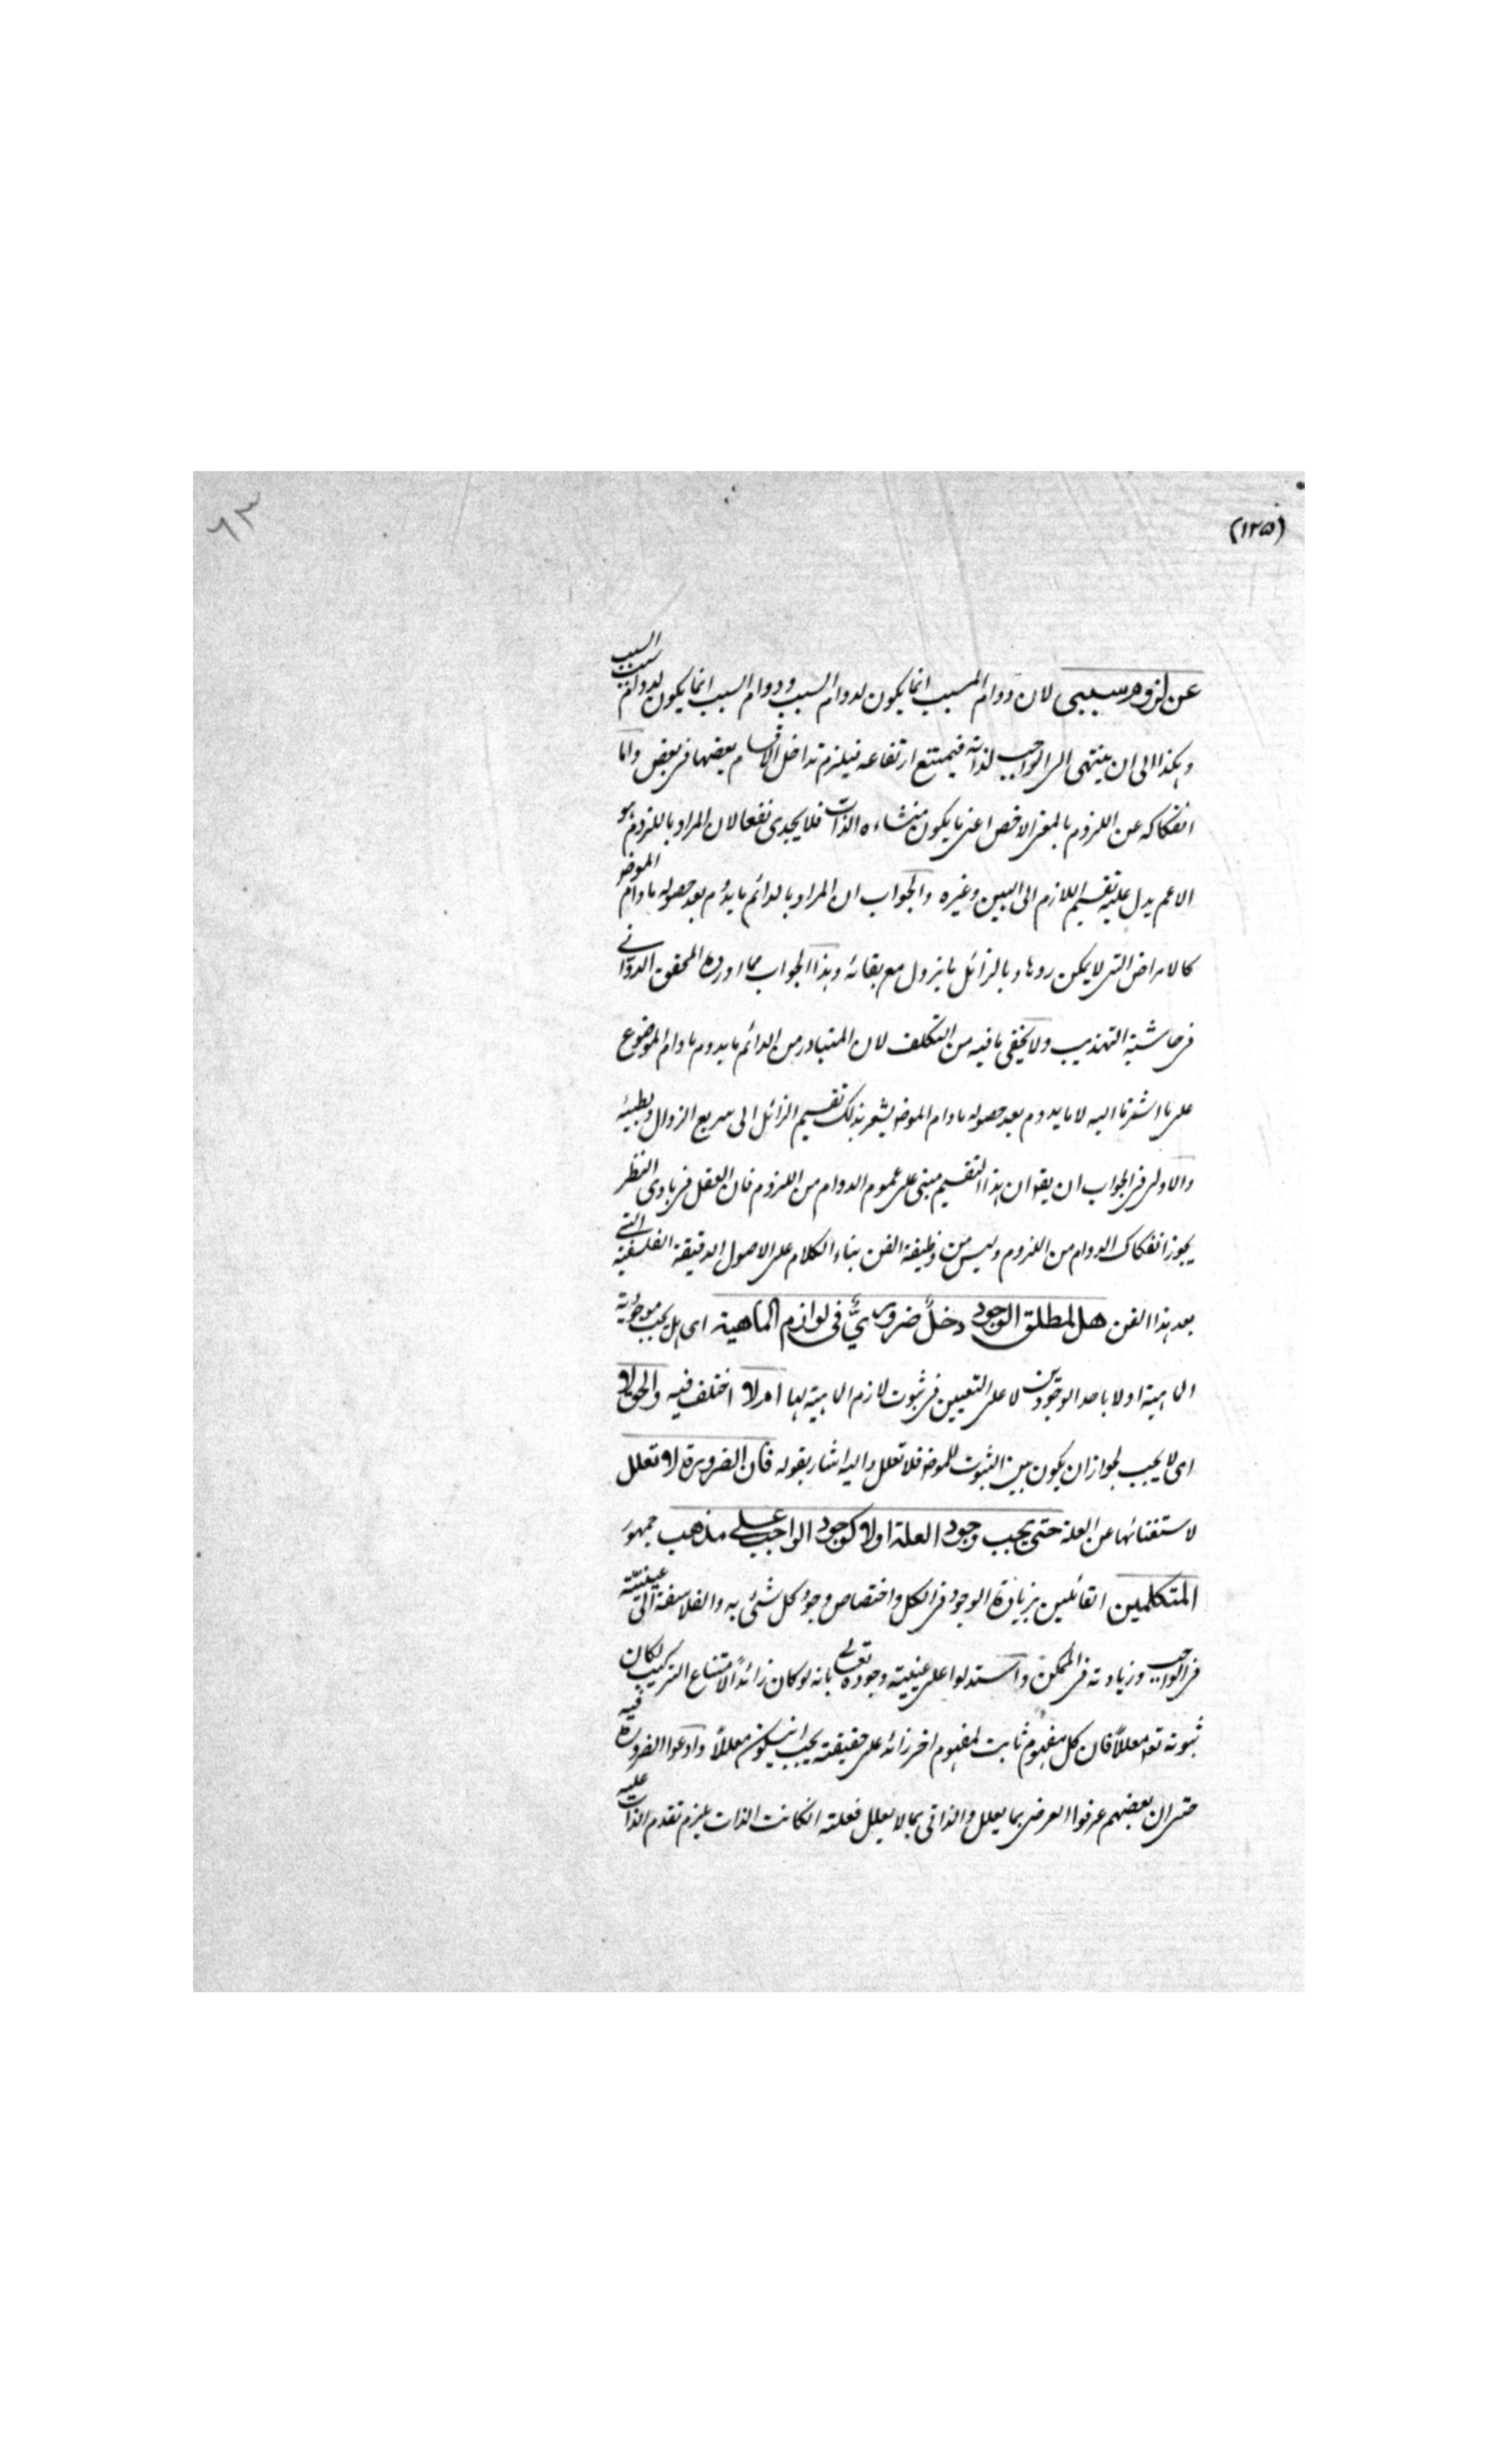 (١٢٥)
٦٣
عن لزوم سببی لان دوام المسبب انما یکون لدوام السبب ودوام السبب انما یکون لدوام سبب السبب
وهکذا الی ان ینتهی الی الواجب لذاته فیمتنع ارتفاعه فیلزم تداخل الاقسام بعضها فی بعض واما
انفکاکه عن اللزوم بالمعنی الاخص اعنی ما یکون منشاءه الذات فلا یجدی نفعا لان المراد باللزوم هو
الاعم یدل علیه تقسیم اللازم الی البین وغیره والجواب ان المراد بالدائم ما یدوم بعد حصوله مادام الموضو
کالامراض التی لا یمکن روها وبالزائل ما یزول مع بقائه وهذا الجواب مما اورده المحقق الدوانی
فی حاشیة التهذیب ولا یخفی ما فیه من التکلف لان المتبادر من الدائم ما یدوم مادام الموضوع
علی ما اشرنا الیه لا ما یدوم بعد حصوله مادام الموضو یشعر بذلک تقسیم الزائل الی سریع الزوال وبطیئه
والاولی فی الجواب ان یقو ان هذا التقسیم مبنی علی عموم الدوام من اللزوم فان العقل فی بادی النظر
یجوز انفکاک الدوام من اللزوم ولیس من وظیفة الفن بناء الکلام علی الاصول الدقیقة الفلسفیة التی
بعد هذا الفن هل لمطلق الوجود دخلٌ ضروریٌّ فی لوازم الماهیة ای هل یجب موجودیة
الماهیة اولا باحد الوجودین لا علی التعیین فی ثبوت لازم الماهیة لها ام لا اختلف فیه والحق لا
ای لا یجب لجواز ان یکون بین الثبوت للموضو فلا تعلل والیه اشار بقوله فان الضرورة لا تعلل
لاستغنائها عن العلة حتی یجب وجود العلة اولا کوجود الواجب علی مذهب جمهور
المتکلمین القائلین بزیادة الوجود فی الکل واختصاص وجود کل شئ به والفلاسفة الی عینیته
فی الواجب وزیادته فی الممکن واستدلوا علی عینیة وجوده تعالی بانه لو کان زائداً لامتناع الترکیب لکان
ثبوته تعا معللاً فان کل مفهوم ثابت لمفهوم اخر زائد علی حقیقته یجب ان یکون معللاً وادعوا الضرورة فیه
حتی ان بعضهم عرفوا العرضی بما یعلل والذاتی بما لا یعلل فعلته انکانت الذات یلزم تقدم الذات علیه